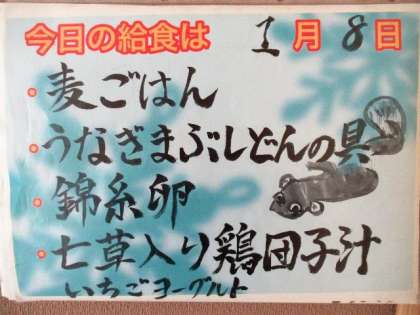 今日の給食は 1月8日
・麦ごはん
・うなぎまぶしどんの具
・錦糸卵
・七草入り鶏団子汁
いちごヨーグルト